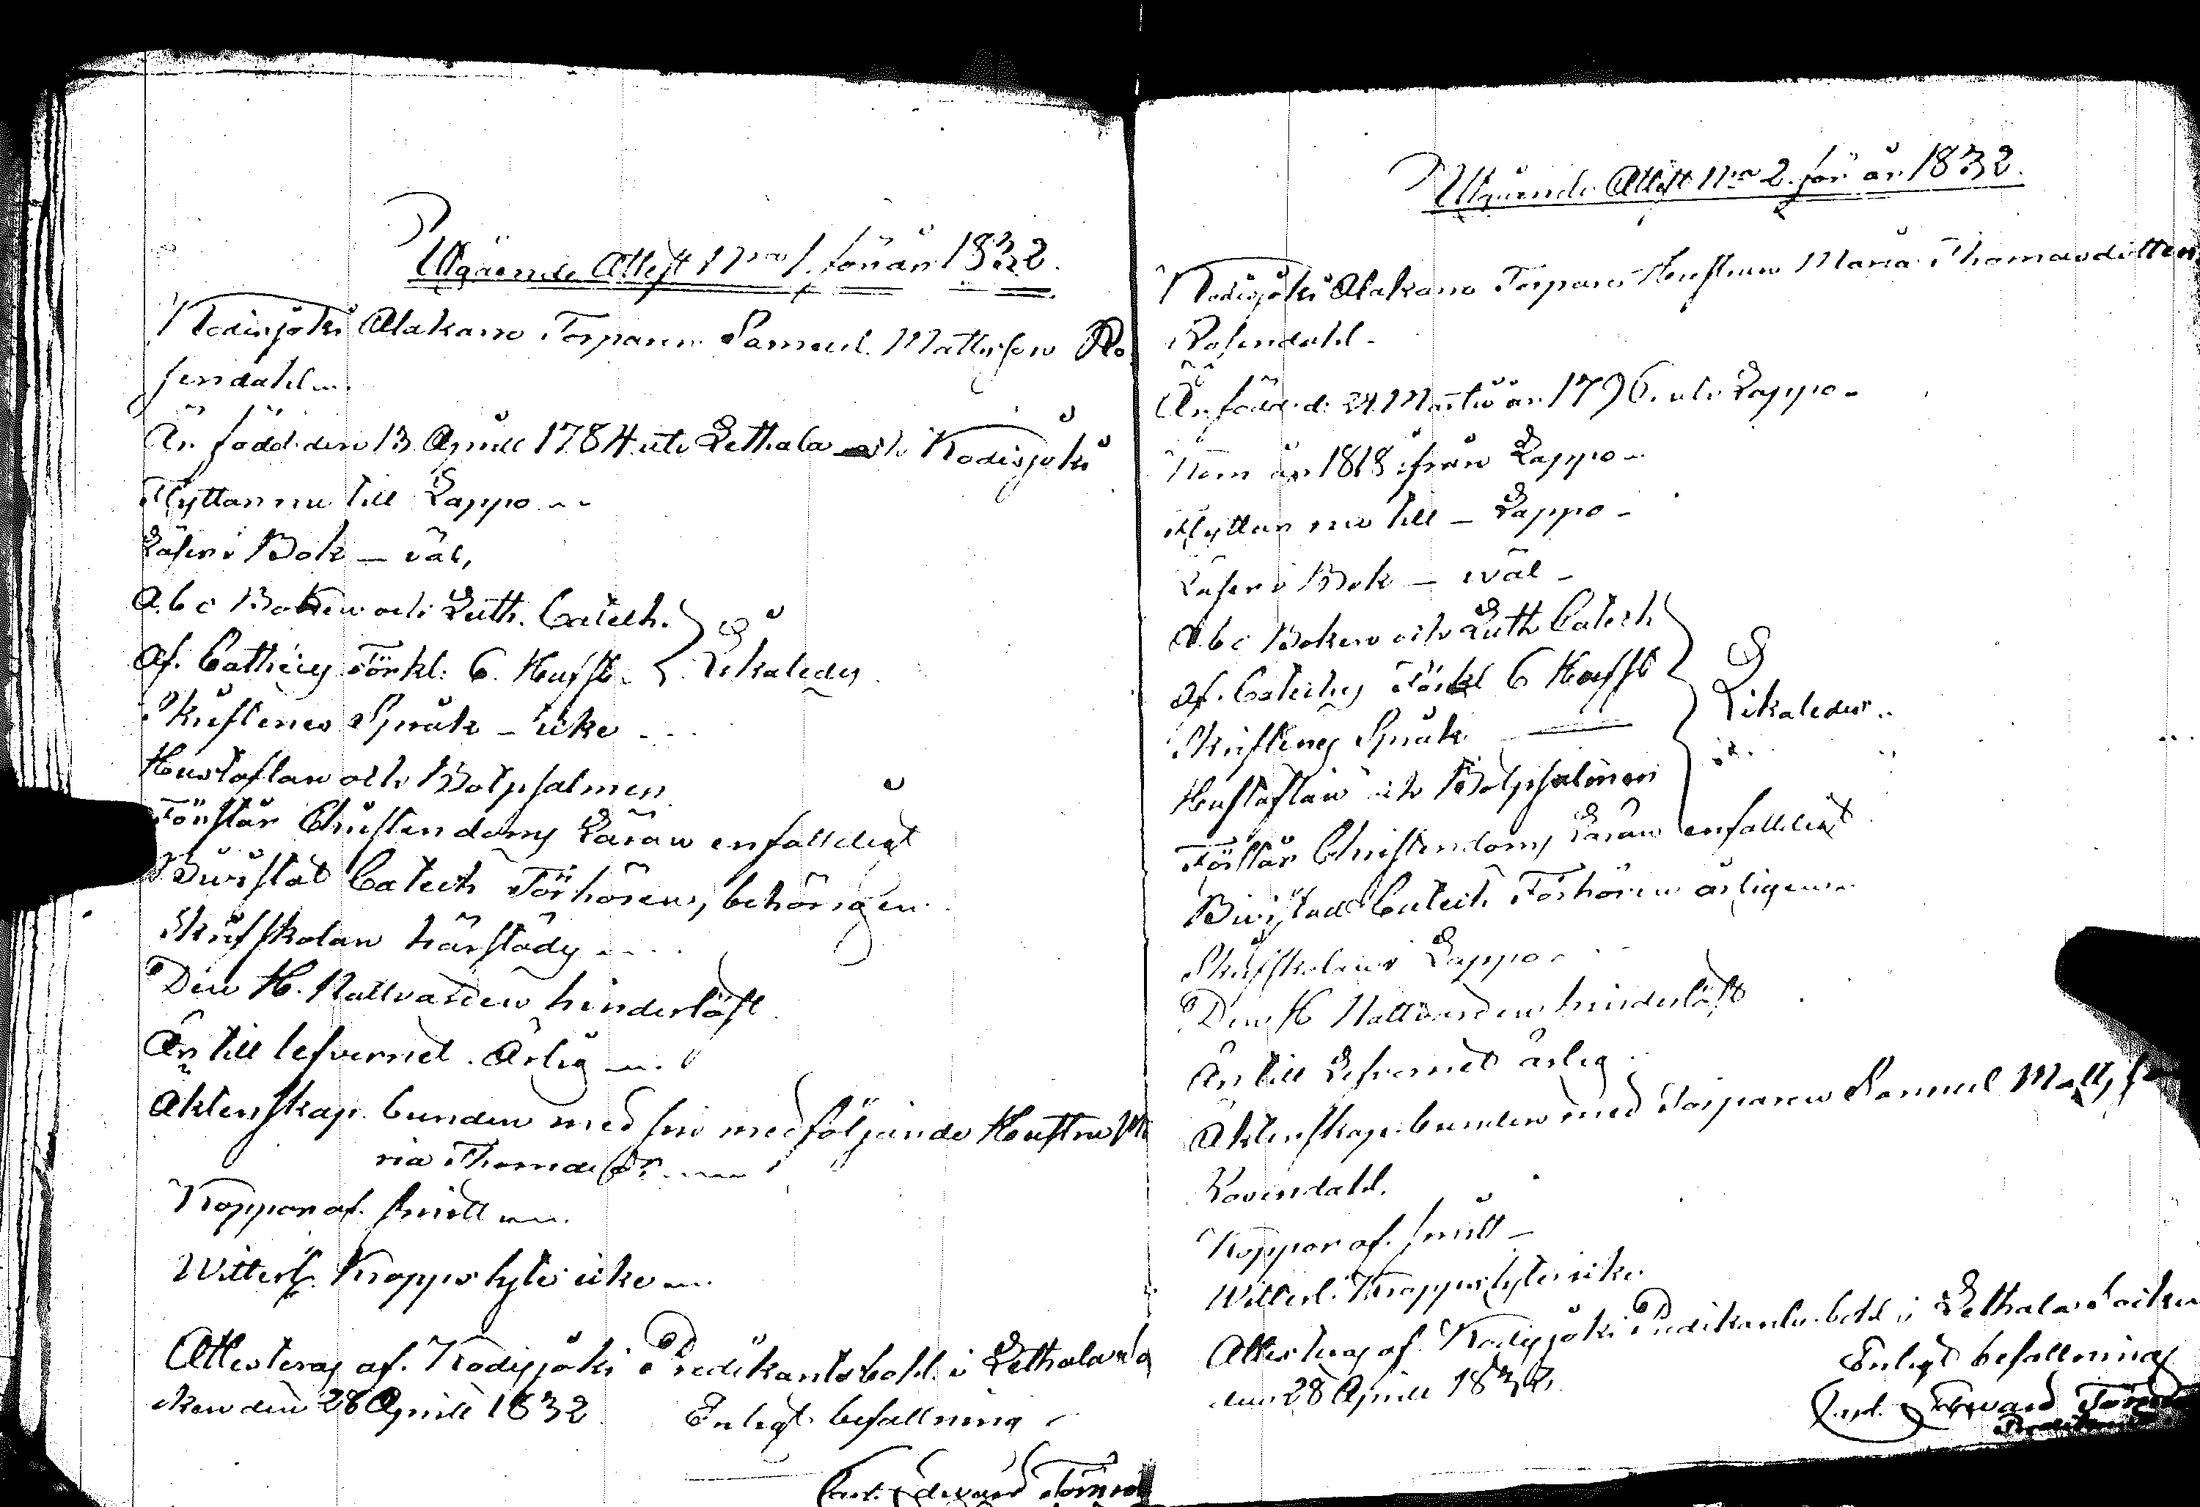 Utgående Attest Nro 1. för år 1832.
Kodisjoki Alakano Torparen Samuel Mattsson Ro
sendahl
Är född den 13 Aprill 1784 uti Lethala och Kodisjoki
Flyttar nu till Lappo
Läser i Bok – väl,
Abc Boken och Luth. Catech.
Af. Cathecs Förkl. 6. Hufst. Likaledes
Skriftenes Språk – icke
Hustaflan och Botpsalmen
Förstår Christendoms Läran enfalldigt
Bivistat Catech Förhören, behörigen
Skriftskolan härstädes
Den H. Nattvarden hinderlöst
Är till lefvernet. Ärlig
Äktenskap bunden med sin medföljande Hustru Ma
ria Thomasdr.
Koppor af. smitt
Witterl. Kropps lyte icke
Attesteras af. Kodisjoki Predikantsbohl i Lethala so
cken den 28 Aprill 1832
Enligt befallning
Carl. Edward Törnro
Utgående Attest Nro 2. för år 1832.
Kodisjoki Alakano Torpare Hustrun Maria Thomasdotter
Rosendahl
Är född d: 24 Martii år 1796. uti Lappo
Kom år 1818 ifrån Lappo
Flyttar nu till – Lappo –
Läser i Bok – wäl –
Abc Boken och Luth Catech
Af. Catechs Förkl 6 Hufst
Skriftens Språk
Likaledes
Hustaflan och Botpsalmen
Förstår Christendoms Läran enfalldigt
Bivistad Catech Förhören årligen
Skriftskolan i Lappo
Den H Nattvarden hinderlöst
Är till Lefvernet ärlig
Äktenskaps bunden med Torparen Samuel Mattsson
Rosendahl.
Koppor af. smitt –
Witterl. Kropps lyte icke
Attesteras af. Kodisjoki Predikants bohl i Lethala Socken
den 28 Aprill 1832.
Enligt befallning
Carl. Edward